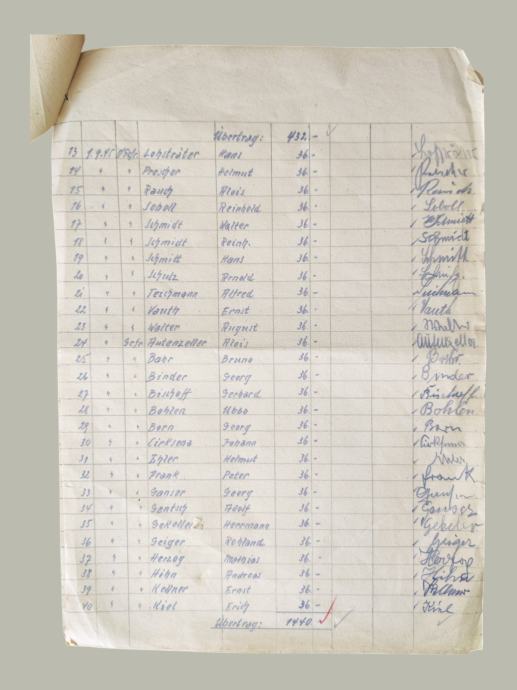 Übertrag: 432.-
13 1.9.41 Lohsträter Hans 36.-
14 " " Prescher Helmut 36.- Prescher
15 " " Rauch Alois 36.- Rauch
16 " " Seboll Reinhold 36.- Seboll
17 " " Schmidt Walter 36.- Schmidt
18 " " Schmidt Reinh. 36.- Schmidt
19 " " Schmitt Hans 36.- Schmitt
20 " " Schulz Arnold 36.-
21 " " Teschmann Alfred 36.-
22 " " Vauth Ernst 36.- Vauth
23 " " Walter August 36.- Walter
24 " Gefr. Autenzeller Alois 36.- Autenzeller
25 " " Bahr Bruno 36.-
26 " " Binder Georg 36.- Binder
27 " " Bischoff Gerhard 36.- Bischoff
28 " " Bohlen Ubbo 36.- Bohlen
29 " " Born Georg 36.- Born
30 " " Cirksena Johann 36.-
31 " " Ehler Helmut 36.-
32 " " Frank Peter 36.- Frank
33 " " Ganser Georg 36.-
34 " " Adolf 36.-
35 " " Herrmann 36.-
36 " " Geiger 36.- Geiger
37 " " Herzog Mathias 36.- Herzog
38 " " Höhn Andreas 36.-
39 " " Kellner Ernst 36.- Kellner
40 " " Kiel Erich 36.- Kiel
Übertrag: 1440.-